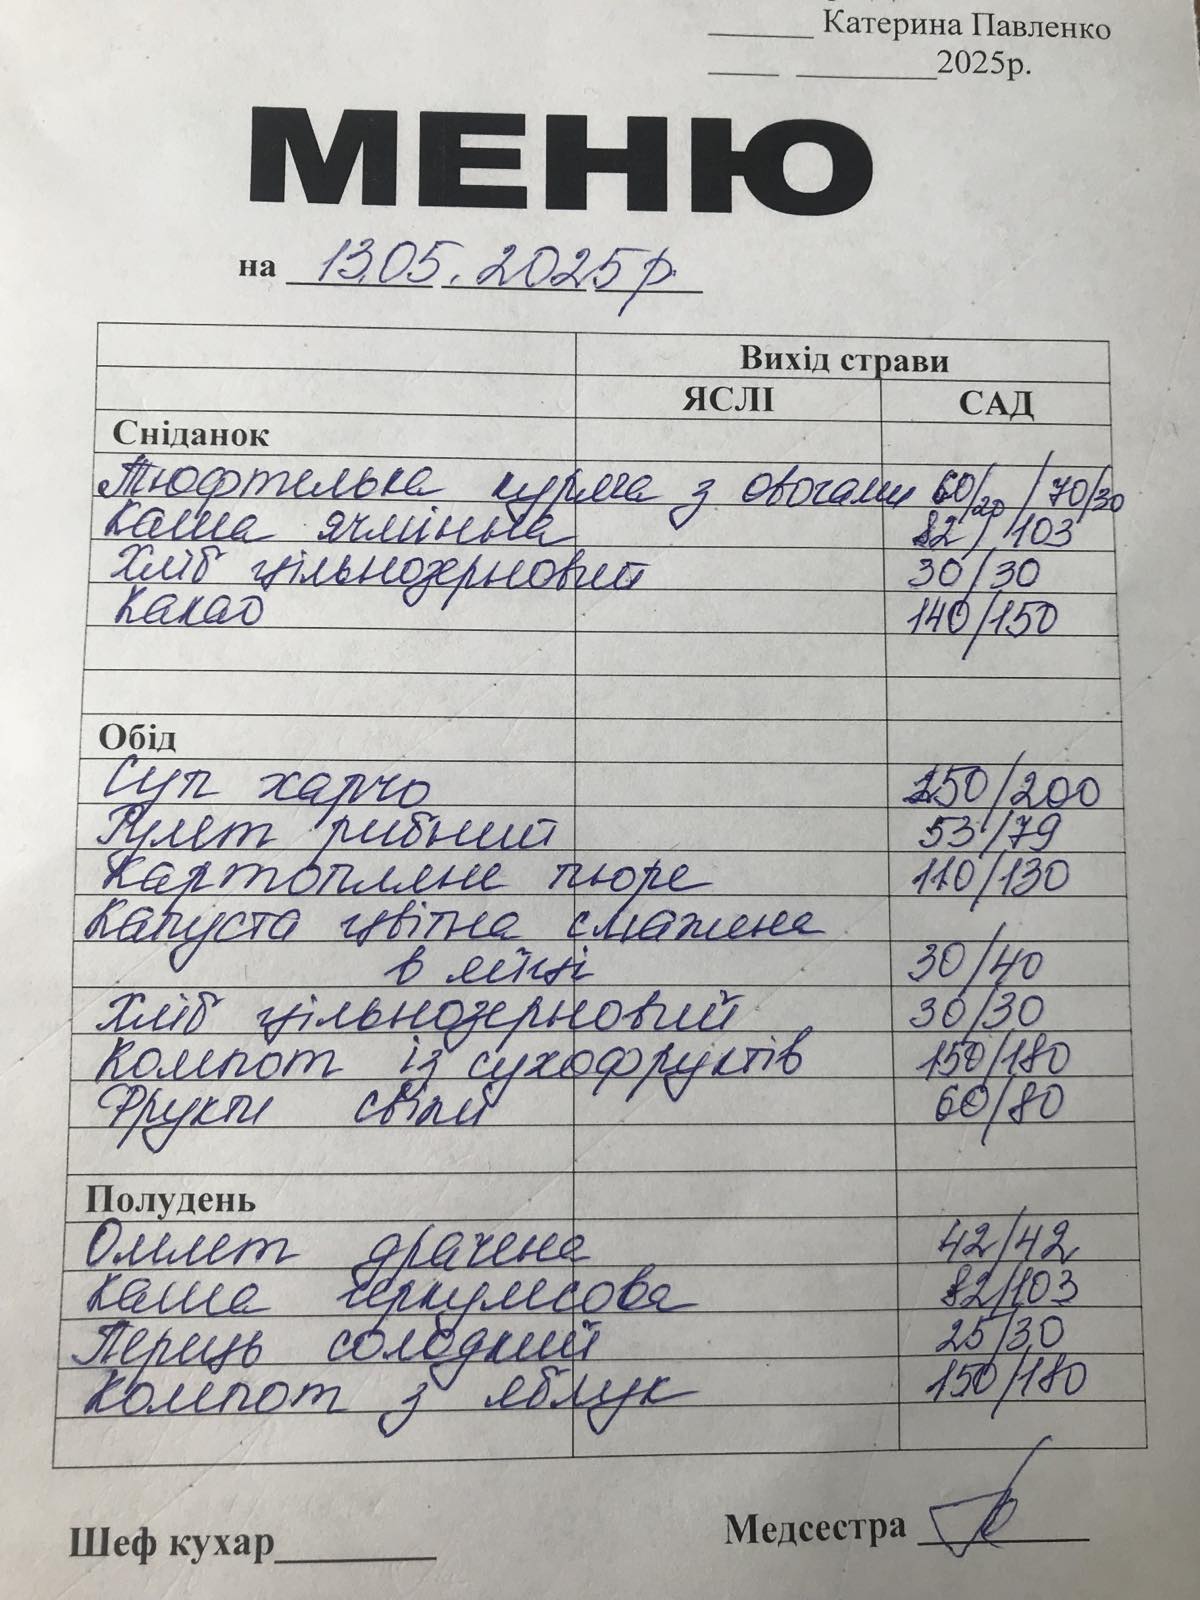 Катерина Павленко
2025р.
МЕНЮ
на 13.05.2025р.
Вихід страви
ЯСЛІ САД
Сніданок
Тюфтелька куряча з овочами 60/20 / 70/30
Каша ячмінна 82/103
Хліб цільнозерновий 30/30
Какао 140/150
Обід
Суп харчо 150/200
Рулет рибний 53/79
Картопляне пюре 110/130
Капуста цвітна смажена
в яйці 30/40
Хліб цільнозерновий 30/30
Компот із сухофруктів 150/180
Фрукти свіжі 60/80
Полудень
Омлет драчена 42/42
Каша геркулесова 82/103
Перець солодкий 25/30
Компот з яблук 150/180
Шеф кухар Медсестра